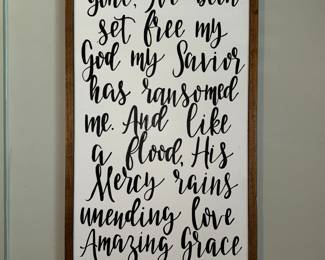 gone, I've been
set free my
God my Savior
has ransomed
me. And like
a flood, His
Mercy rains
unending love
Amazing Grace